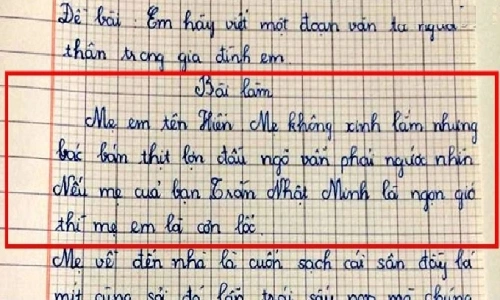 Đề bài: Em hãy viết một đoạn văn tả người
thân trong gia đình em.
Bài làm
Mẹ em tên Hiền Mẹ không xinh lắm nhưng
bác bán thịt lợn đầu ngõ vẫn phải ngước nhìn
Nếu mẹ của bạn Trần Nhật Minh là ngọn gió
thì mẹ em là cơn lốc.
Mẹ về đến nhà là cuốn sạch cái sân đầy lá
mít cùng sỏi đá lẫn trái sấu non mà chúng